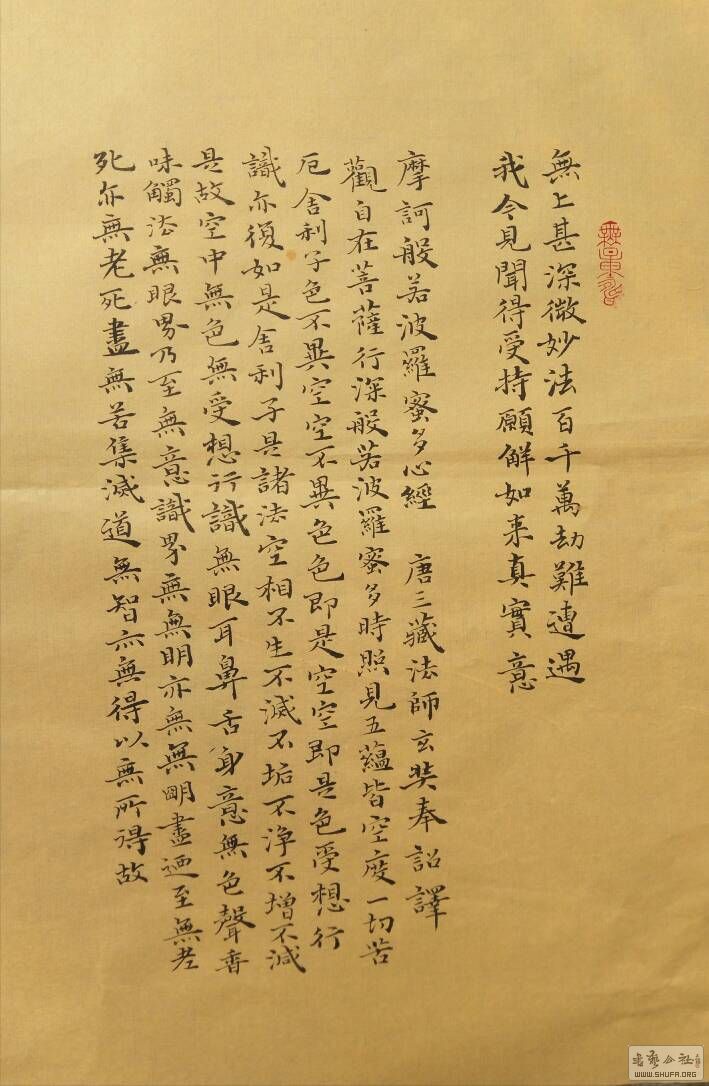 無上甚深微妙法百千萬劫難遭遇
我今見聞得受持願解如来真實意
摩訶般若波羅蜜多心經 唐三藏法師玄奘奉詔譯
觀自在菩薩行深般若波羅蜜多時照見五蘊皆空度一切苦
厄舍利子色不異空空不異色色即是空空即是色受想行
識亦復如是舍利子是諸法空相不生不滅不垢不淨不增不減
是故空中無色無受想行識無眼耳鼻舌身意無色聲香
味觸法無眼界乃至無意識界無無明亦無無明盡迺至無老
死亦無老死盡無苦集滅道無智亦無得以無所得故
WWW.SHUFA.ORG